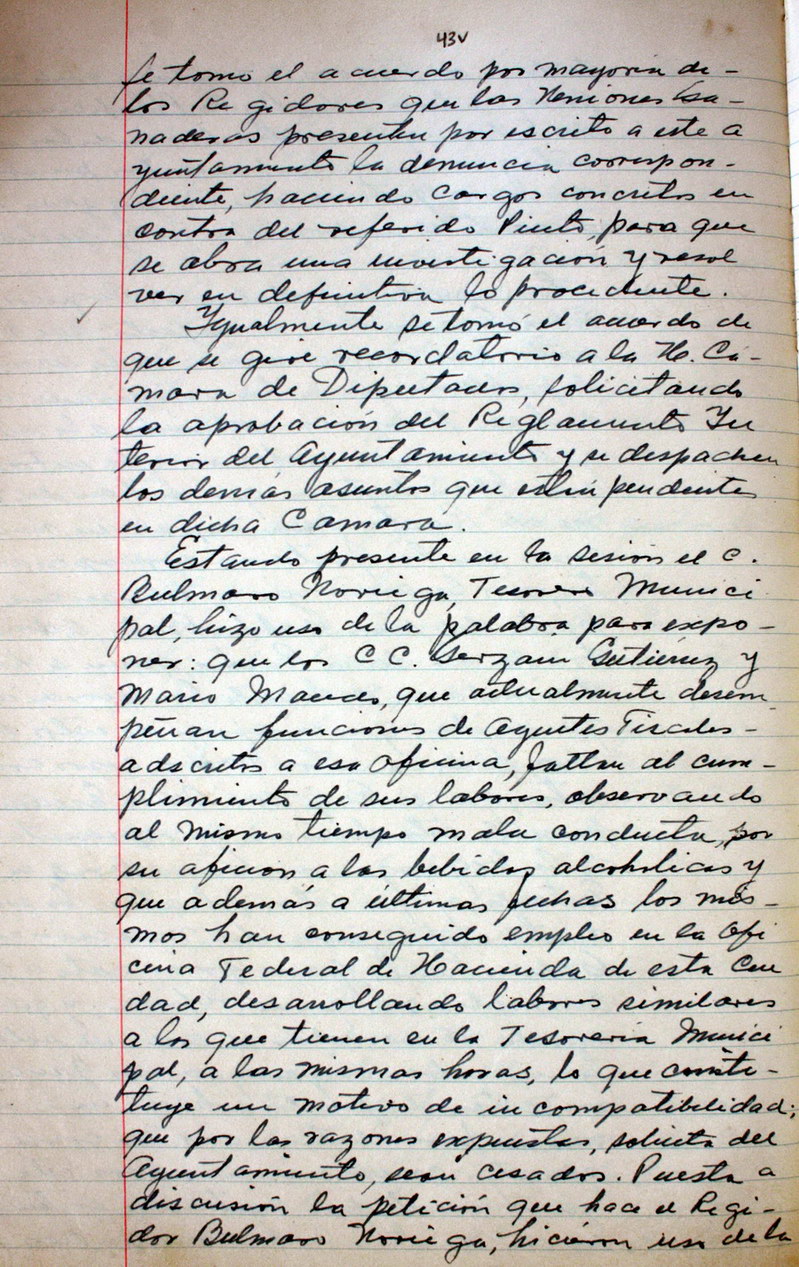 43v
se tomo el acuerdo por mayoria de-
los Regidores que las Uniones Ga-
naderas presenten por escrito a este a
yuntamiento la denuncia correspon-
diente, haciendo cargos concretos en
contra del referido Pinto, para que
se abra una investigación y resol
ver en definitiva lo procedente.
Igualmente se tomó el acuerdo de
que se gire recordatorio a la H. Cá-
mara de Diputados, solicitando
la aprobación del Reglamento In
terior del Ayuntamiento y se despachen
los demás asuntos que estén pendientes
en dicha Camara.
Estando presente en la sesión el C.
Bulmaro Noriega, Tesorero Munici
pal, hizo uso de la palabra para expo-
ner: que los CC. Gutiérrez y
Mario, que actualmente desem
peñan funciones de Agentes Fiscales-
adscritos a esa oficina, faltan al cum-
plimiento de sus labores, observando
al mismo tiempo mala conducta, por
su aficion a las bebidas alcoholicas y
que además a últimas fechas los mis-
mos han conseguido empleo en la Ofi
cina Federal de Hacienda de esta Ciu
dad, desarrollando labores similares
a los que tienen en la Tesoreria Munici
pal, a las mismas horas, lo que consti-
tuye un motivo de incompatibilidad;
que por las razones expuestas, solicita del
Ayuntamiento, sean cesados. Puesta a
discusión la petición que hace el Regi-
dor Bulmaro Noriega, hicieron uso de la